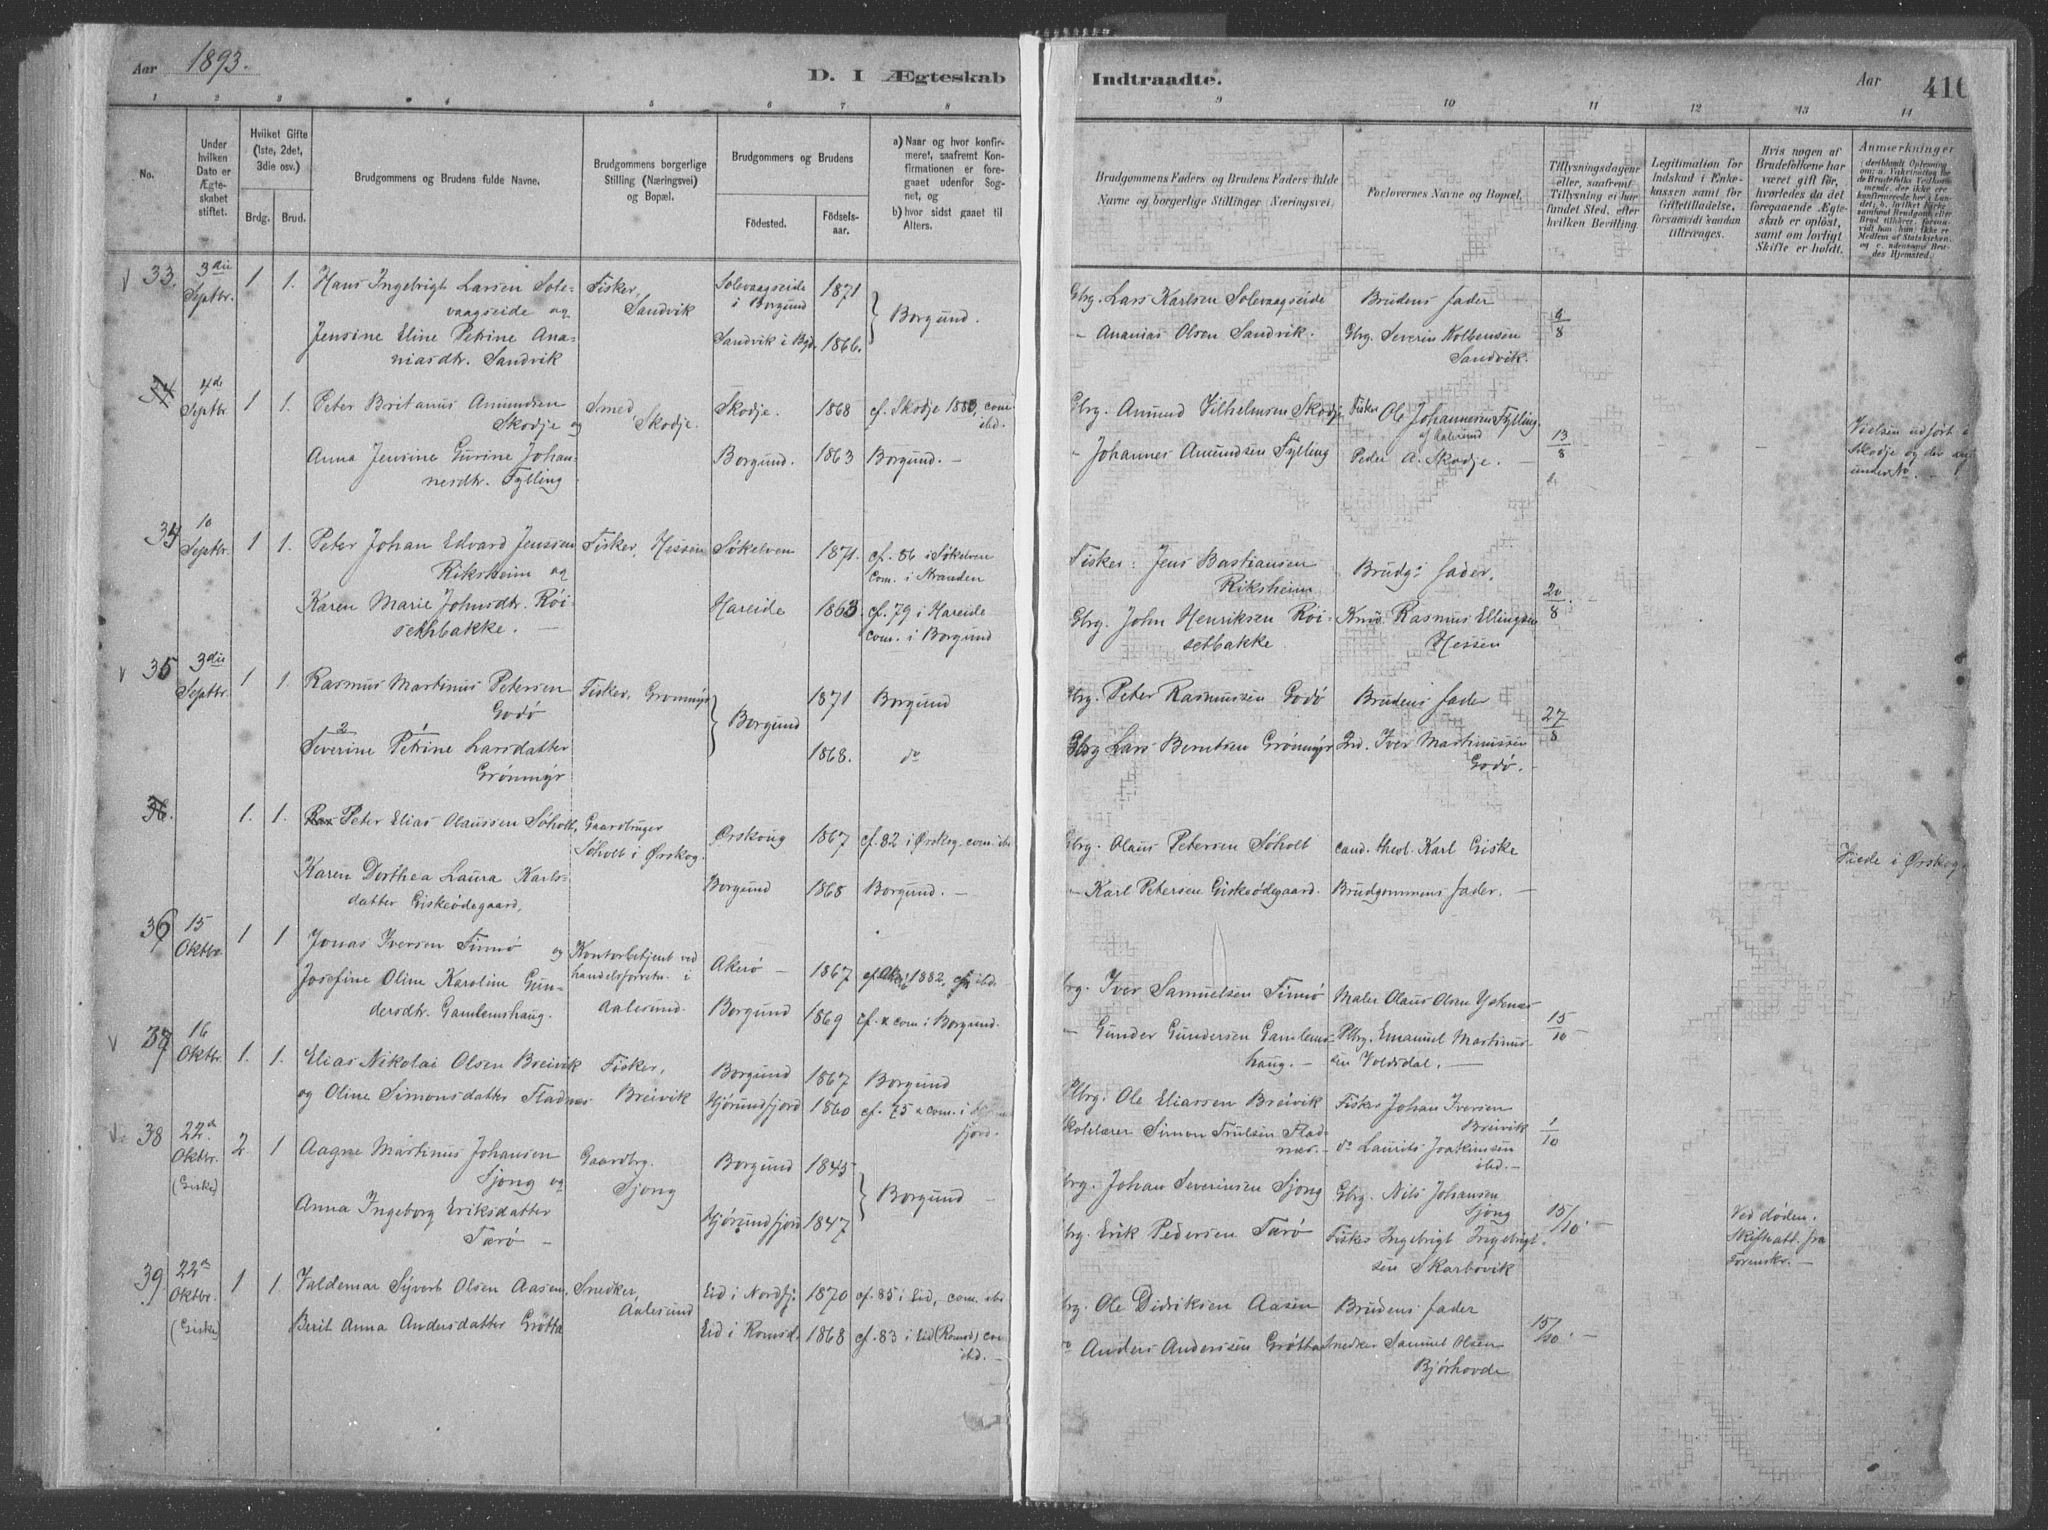 Aar 1893.
D. I Ægteskab
Indtraadte.
Aar 410
1 2 3 4 5 6 7 8
9 10 11 12 13 14
No.
Under hvilken Dato er Ægteskabet stiftet.
Hvilket Gifte (1ste, 2det, 3die osv.)
Brdg. Brud.
Brudgommens og Brudens fulde Navne.
Brudgommens borgerlige Stilling (Næringsvei) og Bopæl.
Brudgommers og Brudens
Fødested.
Fødselsaar.
a) Naar og hvor konfirmeret, saafremt Konfirmationen er foregaaet udenfor Sognet, og
b) hvor sidst gaaet til Alters.
Brudgommens Faders og Brudens Faders fulde Navne og borgerlige Stillinger (Næringsvei).
Forlovernes Navne og Bopæl.
Tillysningsdagene eller, saafremt Tillysning ei har fundet Sted, efter hvilken Bevilling.
Legitimation for Indskud i Enkekassen samt for Giftetilladelse, forsaavidt saadan tiltrænges.
Hvis nogen af Brudefolkene har været gift før, hvorledes da det foregaaende Ægteskab er opløst, samt om lovligt Skifte er holdt.
Anmærkninger
33. 3die Septbr. 1 1. Hans Ingebrigt Larsen Solevaagseide og
Fisker, Sandvik
Solevaagseide i Borgund 1871
Jensine Eline Petrine Ananiasdtr. Sandvik
Sandvik i Bgd. 1866.
Borgund.
Gbrg. Lars Karlsen Solevaagseide
Brudens fader
- Ananias Olsen Sandvik.
Gbrg. Severin Kolbensen Sandvik.
6/8
34 4de Septbr. 1 1. Peter Britanus Amundsen Skodje og
Smed, Skodje.
Skodje. 1868 cf. Skodje 1883, com. ibd.
Anna Jensine Gurine Johannesdtr. Fylling
Borgund. 1863 Borgund. -
Gbrg. Amund Vilhelmsen Skodje
Fisker Ole Johannesen Fylling, af Aalesund
" Johannes Amundsen Fylling
Peder A. Skodje. -
13/8
Vielsen udført i Skodje og der under No.
34 10 Septbr. 1 1. Peter Johan Edvard Jenssen Riksheim og
Fisker, Hessen
Søkelven 1871. cf. 86 i Søkelven com. i Stranden
Karen Marie Johnsdtr. Röisethbakke. -
Hareide 1863. cf. 79 i Hareide com. i Borgund
Fisker: Jens Bastiansen Riksheim
Brudg: fader.
Gbrg. John Henriksen Röisetbakke
Rasmus Ellingsen Hessen
20/8. -
35 3die Septbr. 1 1. Rasmus Martinus Petersen Godö
Fisker, Gronmyr
1871 Borgund
Severine Petrine Larsdatter Grönmyr
Borgund
1868. do
Gbrg. Peter Rasmussen Godö
Brudens fader
Gbrg Lars Berntsen Grönmyr
Ind. Iver Martinussen Godö.
27/8
36. 1. 1. Peter Elias Olaussen Søholt,
Gaardbruger Søholt i Ørskog.
Ørskoug 1867 cf. 82 i Ørskog, com. ibd
Karen Dorthea Laura Karlsdatter Giskeödegaard,
Borgund 1868 Borgund. -
Gbrg. Olaus Petersen Søholt
cand. theol. Karl Giske
" Karl Petersen Giskeödegaard.
Brudgommens fader. -
Viede i Ørskog
36 15 Oktbr 1 1 Jonas Iversen Finnö og
Kontorbetjent ved handelsforretn. i Aalesund.
Akerö - 1867 cf. Akerö 1882, ibd.
Josefine Oline Karoline Gundersdtr. Gamlemshaug.
Borgund 1869 cf. & com. i Borgund.
brg. Iver Samuelsen Finnö
Maler Olaus Olsen
- Gunder Gundersen Gamlemshaug. -
Plbrg. Emanuel Martinussen Voldsdal. -
15/10 -
37 16 Oktbr. 1. 1. Elias Nikolai Olsen Breivik
Fisker, Breivik
Borgund 1867 Borgund
og Oline Simonsdatter Fladnes
Hjørundfjord 1860 cf. 75 & com. i fjord.
Plbrg. Ole Eliassen Breivik
Fisker Johan Iversen Breivik
Skolelærer Simon Trulsen Fladnæs. -
do Laurits Joakimsen ibd. -
1/10
38 22de Oktbr. (Giske) 2 1 Aagne Martinus Johansen Sjong og
Gaardbrg. Sjong
Borgund 1845
Anna Ingeborg Eriksdatter Tarö -
Hjørundfjord 1847
Borgund -
brg. Johan Severinsen Sjong
Gbrg. Nils Johansen Sjong
brg. Erik Pedersen Tarö
Fisker Ingebrigt Ingebrigtsen Skarbövik
15/10. -
Ved döden. Skifteatt. fra Forenskr. -
39 22de Oktbr. (Giske) 1 1. Valdemar Syvert Olsen Aasen,
Snedker, Aalesund
Eid i Nordfj. 1870 cf. 85 i Eid, com. ibd
Berit Anna Andersdatter Grötta
Eid i Romsd. 1868 cf. 83 i Eid (Romsd) com ibd. -
brg. Ole Didriksen Aasen
Brudens fader
do Anders Anderssen Grøtta
Snedker Samuel Olsen Bjørhovde
15/10. -